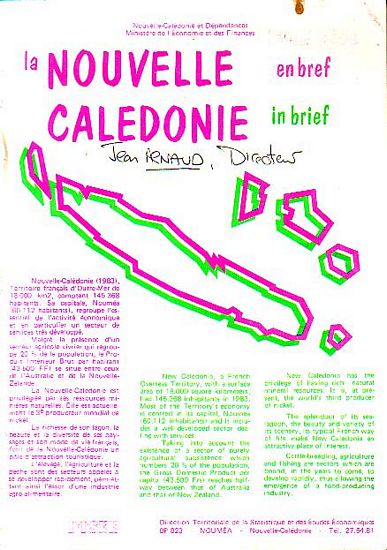 Nouvelle-Calédonie et Dépendances
Ministère de l'Economie et des Finances
la NOUVELLE en bref
CALEDONIE in brief
Jean ARNAUD, Directeur
Nouvelle-Calédonie (1983),
Territoire français d'Outre-Mer de
19 000 km2, comptant 145 368
habitants. Sa capitale, Nouméa
(60 112 habitants), regroupe l'es-
sentiel de l'activité économique
et en particulier un secteur de
services très développé.
Malgré la présence d'un
secteur agricole vivrier qui regrou-
pe 20 % de la population, le Pro-
duit Intérieur Brut par habitant
(43 500 FF) se situe entre ceux
de l'Australie et de la Nouvelle-
Zélande.
La Nouvelle-Calédonie est
privilégiée par ses ressources mi-
nières naturelles. Elle est actuelle-
ment le 3e producteur mondial de
nickel.
La richesse de son lagon, la
beauté et la diversité de ses pay-
sages et son mode de vie français,
font de la Nouvelle-Calédonie un
pôle d'attraction touristique.
L'élevage, l'agriculture et la
pêche sont des secteurs appelés à
se développer rapidement, permet-
tant ainsi l'essor d'une industrie
agro-alimentaire.
New Caledonia, a French
Overseas Territory, with a surface
area of 19,000 square kilometers,
had 145,368 inhabitants in 1983.
Most of the Territory's economy
is centred in its capital, Nouméa
(60,112 inhabitants) and it inclu-
des a well developed sector dea-
ling with services.
Taking into account the
existence of a sector of purely
agricultural subsistence which
numbers 20 % of the population,
the Gross Domestic Product per
capita (43,500 FFr) reaches half-
way between that of Australia
and that of New Zealand.
New Caledonia has the
privilege of having rich natural
mineral resources. It is, at pre-
sent, the world's third producer
of nickel.
The splendour of its sea-
goon, the beauty and variety of
its scenery, its typical French way
of life make New Caledonia an
attractive place of interest.
Cattle-breeding, agriculture
and fishing are sectors which are
bound, in the years to come, to
develop rapidly, thus allowing the
emergence of a food-producing
industry.
Direction Territoriale de la Statistique et des Etudes Economiques
BP 823 NOUMÉA - Nouvelle-Calédonie - Tel. 27.54.81